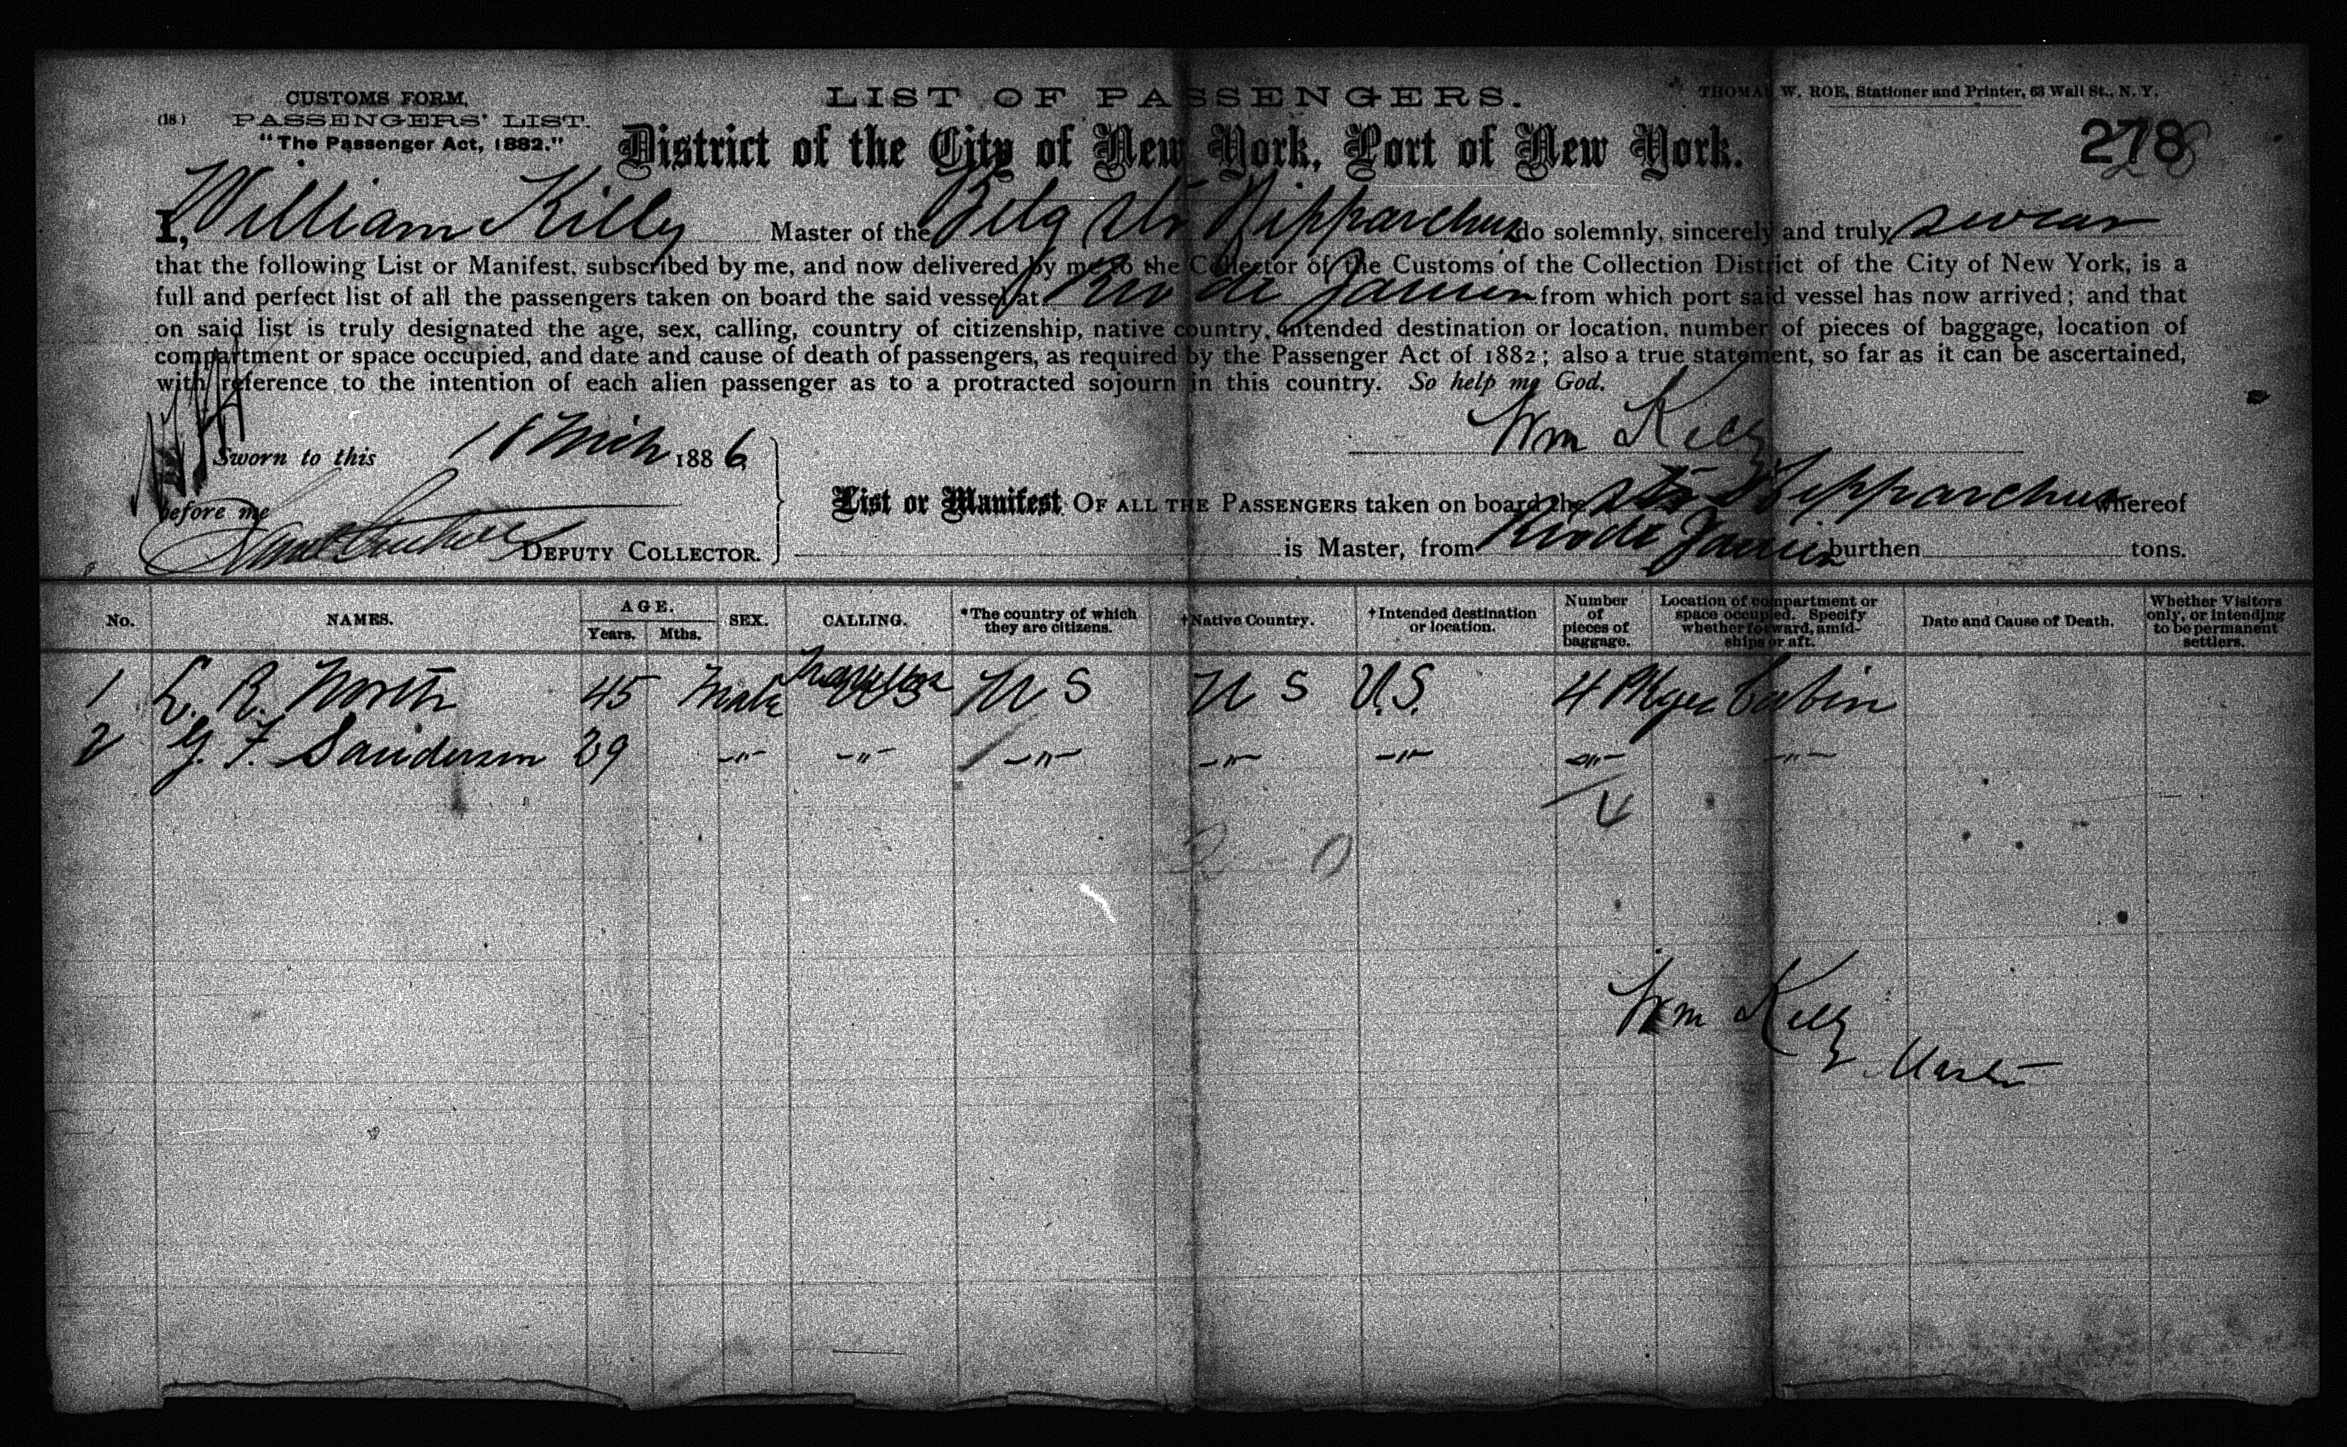 CUSTOMS FORM.
(18)
PASSENGERS' LIST.
"The Passenger Act, 1882."
LIST OF PASSENGERS.
THOMAS W. ROE, Stationer and Printer, 63 Wall St., N. Y.
District of the City of New York, Port of New York.
278
I, William Killy Master of the Belg Str Hipparchus do solemnly, sincerely and truly swear
that the following List or Manifest, subscribed by me, and now delivered by me to the Collector of the Customs of the Collection District of the City of New York, is a
full and perfect list of all the passengers taken on board the said vessel at Rio de Janeiro from which port said vessel has now arrived; and that
on said list is truly designated the age, sex, calling, country of citizenship, native country, intended destination or location, number of pieces of baggage, location of
compartment or space occupied, and date and cause of death of passengers, as required by the Passenger Act of 1882; also a true statement, so far as it can be ascertained,
with reference to the intention of each alien passenger as to a protracted sojourn in this country. So help me God.
Wm Kelly
Sworn to this 18 Mch 1886
before me
DEPUTY COLLECTOR.
List or Manifest OF ALL THE PASSENGERS taken on board the Str Hipparchus whereof
is Master, from Rio de Janeiro burthen tons.
No. NAMES. AGE. Years. Mths. SEX. CALLING. *The country of which they are citizens. †Native Country. †Intended destination or location. Number of pieces of baggage. Location of compartment or space occupied. Specify whether forward, amidships or aft. Date and Cause of Death. Whether Visitors only, or intending to be permanent settlers.
1 L. R. North 45 Male U S U S U.S. 4 Pkges Cabin
2 G. F. Sanderson 39 -"- -"- -"- -"- -"- -"- -"-
4
2 - 0
Wm Kelly
Master